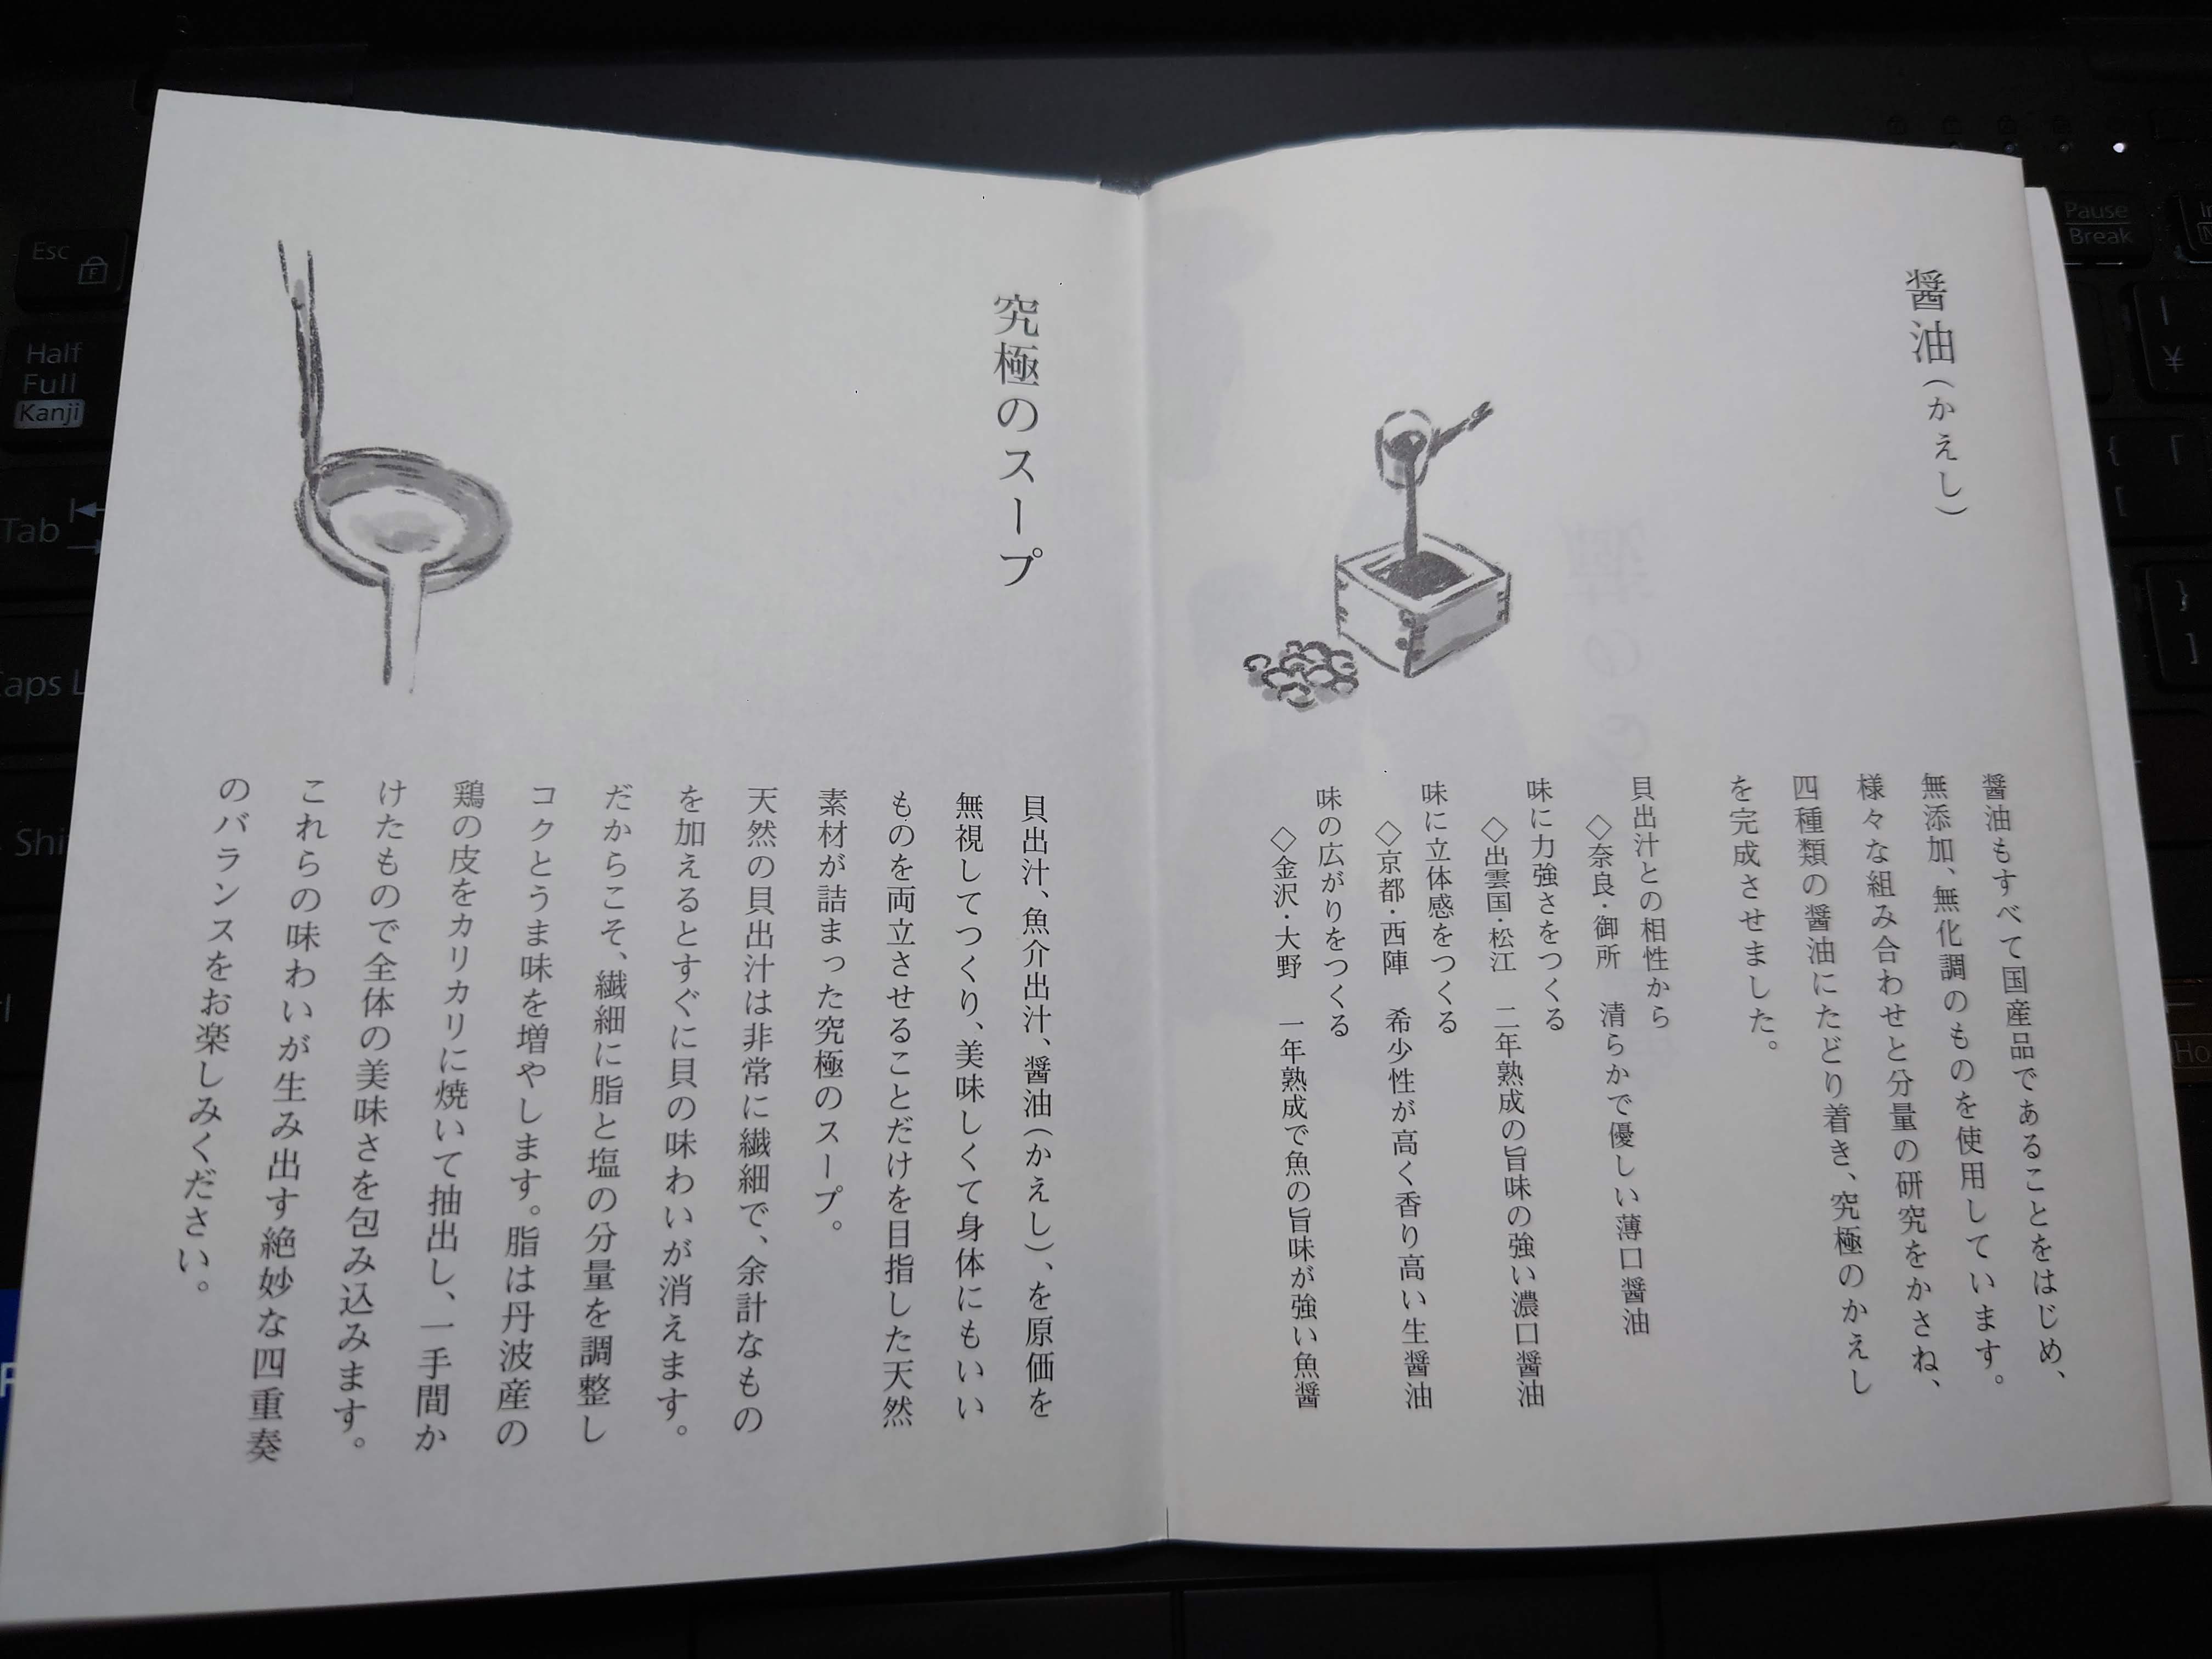 醤油（かえし）
醤油もすべて国産品であることをはじめ、
無添加、無化調のものを使用しています。
様々な組み合わせと分量の研究をかさね、
四種類の醤油にたどり着き、究極のかえし
を完成させました。
貝出汁との相性から
◇奈良・御所　清らかで優しい薄口醤油
味に力強さをつくる
◇出雲国・松江　二年熟成の旨味の強い濃口醤油
味に立体感をつくる
◇京都・西陣　希少性が高く香り高い生醤油
味の広がりをつくる
◇金沢・大野　一年熟成で魚の旨味が強い魚醤
究極のスープ
貝出汁、魚介出汁、醤油（かえし）、を原価を
無視してつくり、美味しくて身体にもいい
ものを両立させることだけを目指した天然
素材が詰まった究極のスープ。
天然の貝出汁は非常に繊細で、余計なもの
を加えるとすぐに貝の味わいが消えます。
だからこそ、繊細に脂と塩の分量を調整し
コクとうま味を増やします。脂は丹波産の
鶏の皮をカリカリに焼いて抽出し、一手間か
けたもので全体の美味さを包み込みます。
これらの味わいが生み出す絶妙な四重奏
のバランスをお楽しみください。
Esc
Half
Full
Kanji
Tab
Caps L
Shi
Pause
Break
Ho